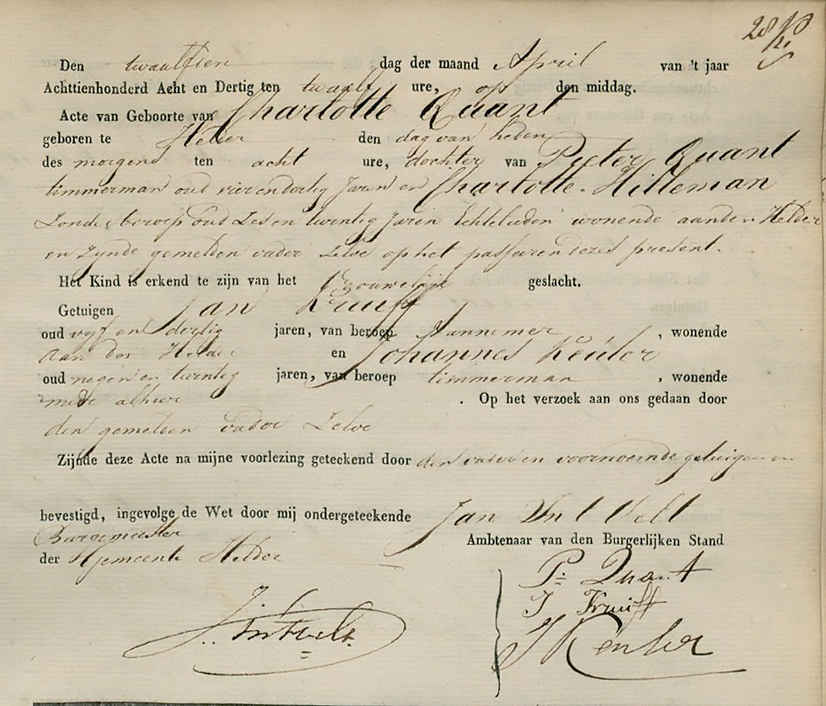 Den twaalften dag der maand April van 't jaar
Achttienhonderd Acht en Dertig ten twaalf ure, op den middag.
Acte van Geboorte van Charlotte Quant
geboren te Helder den dag van heden
des morgens ten acht ure, dochter van Pieter Quant
timmerman oud vier en dertig Jaren en Charlotte Hilleman
Zonder beroep oud Zes en twintig Jaren Echtelieden wonende aan den Helder
en Zynde gemelden vader Zelve op het passeren dezes present.
Het Kind is erkend te zijn van het Vrouwelijk geslacht.
Getuigen Jan
oud vyf en dertig jaren, van beroep aannemer, wonende
aan den Helder en Johannes
oud negen en twintig jaren, van beroep timmerman, wonende
mede alhier. Op het verzoek aan ons gedaan door
den gemelden vader Zelve
Zijnde deze Acte na mijne voorlezing geteekend door den vader en voornoemde getuigen en
bevestigd, ingevolge de Wet door mij ondergeteekende Jan In 't Velt
Burgemeester
Ambtenaar van den Burgerlijken Stand
der Gemeente Helder
P. Quant
J
J. In t Velt
J